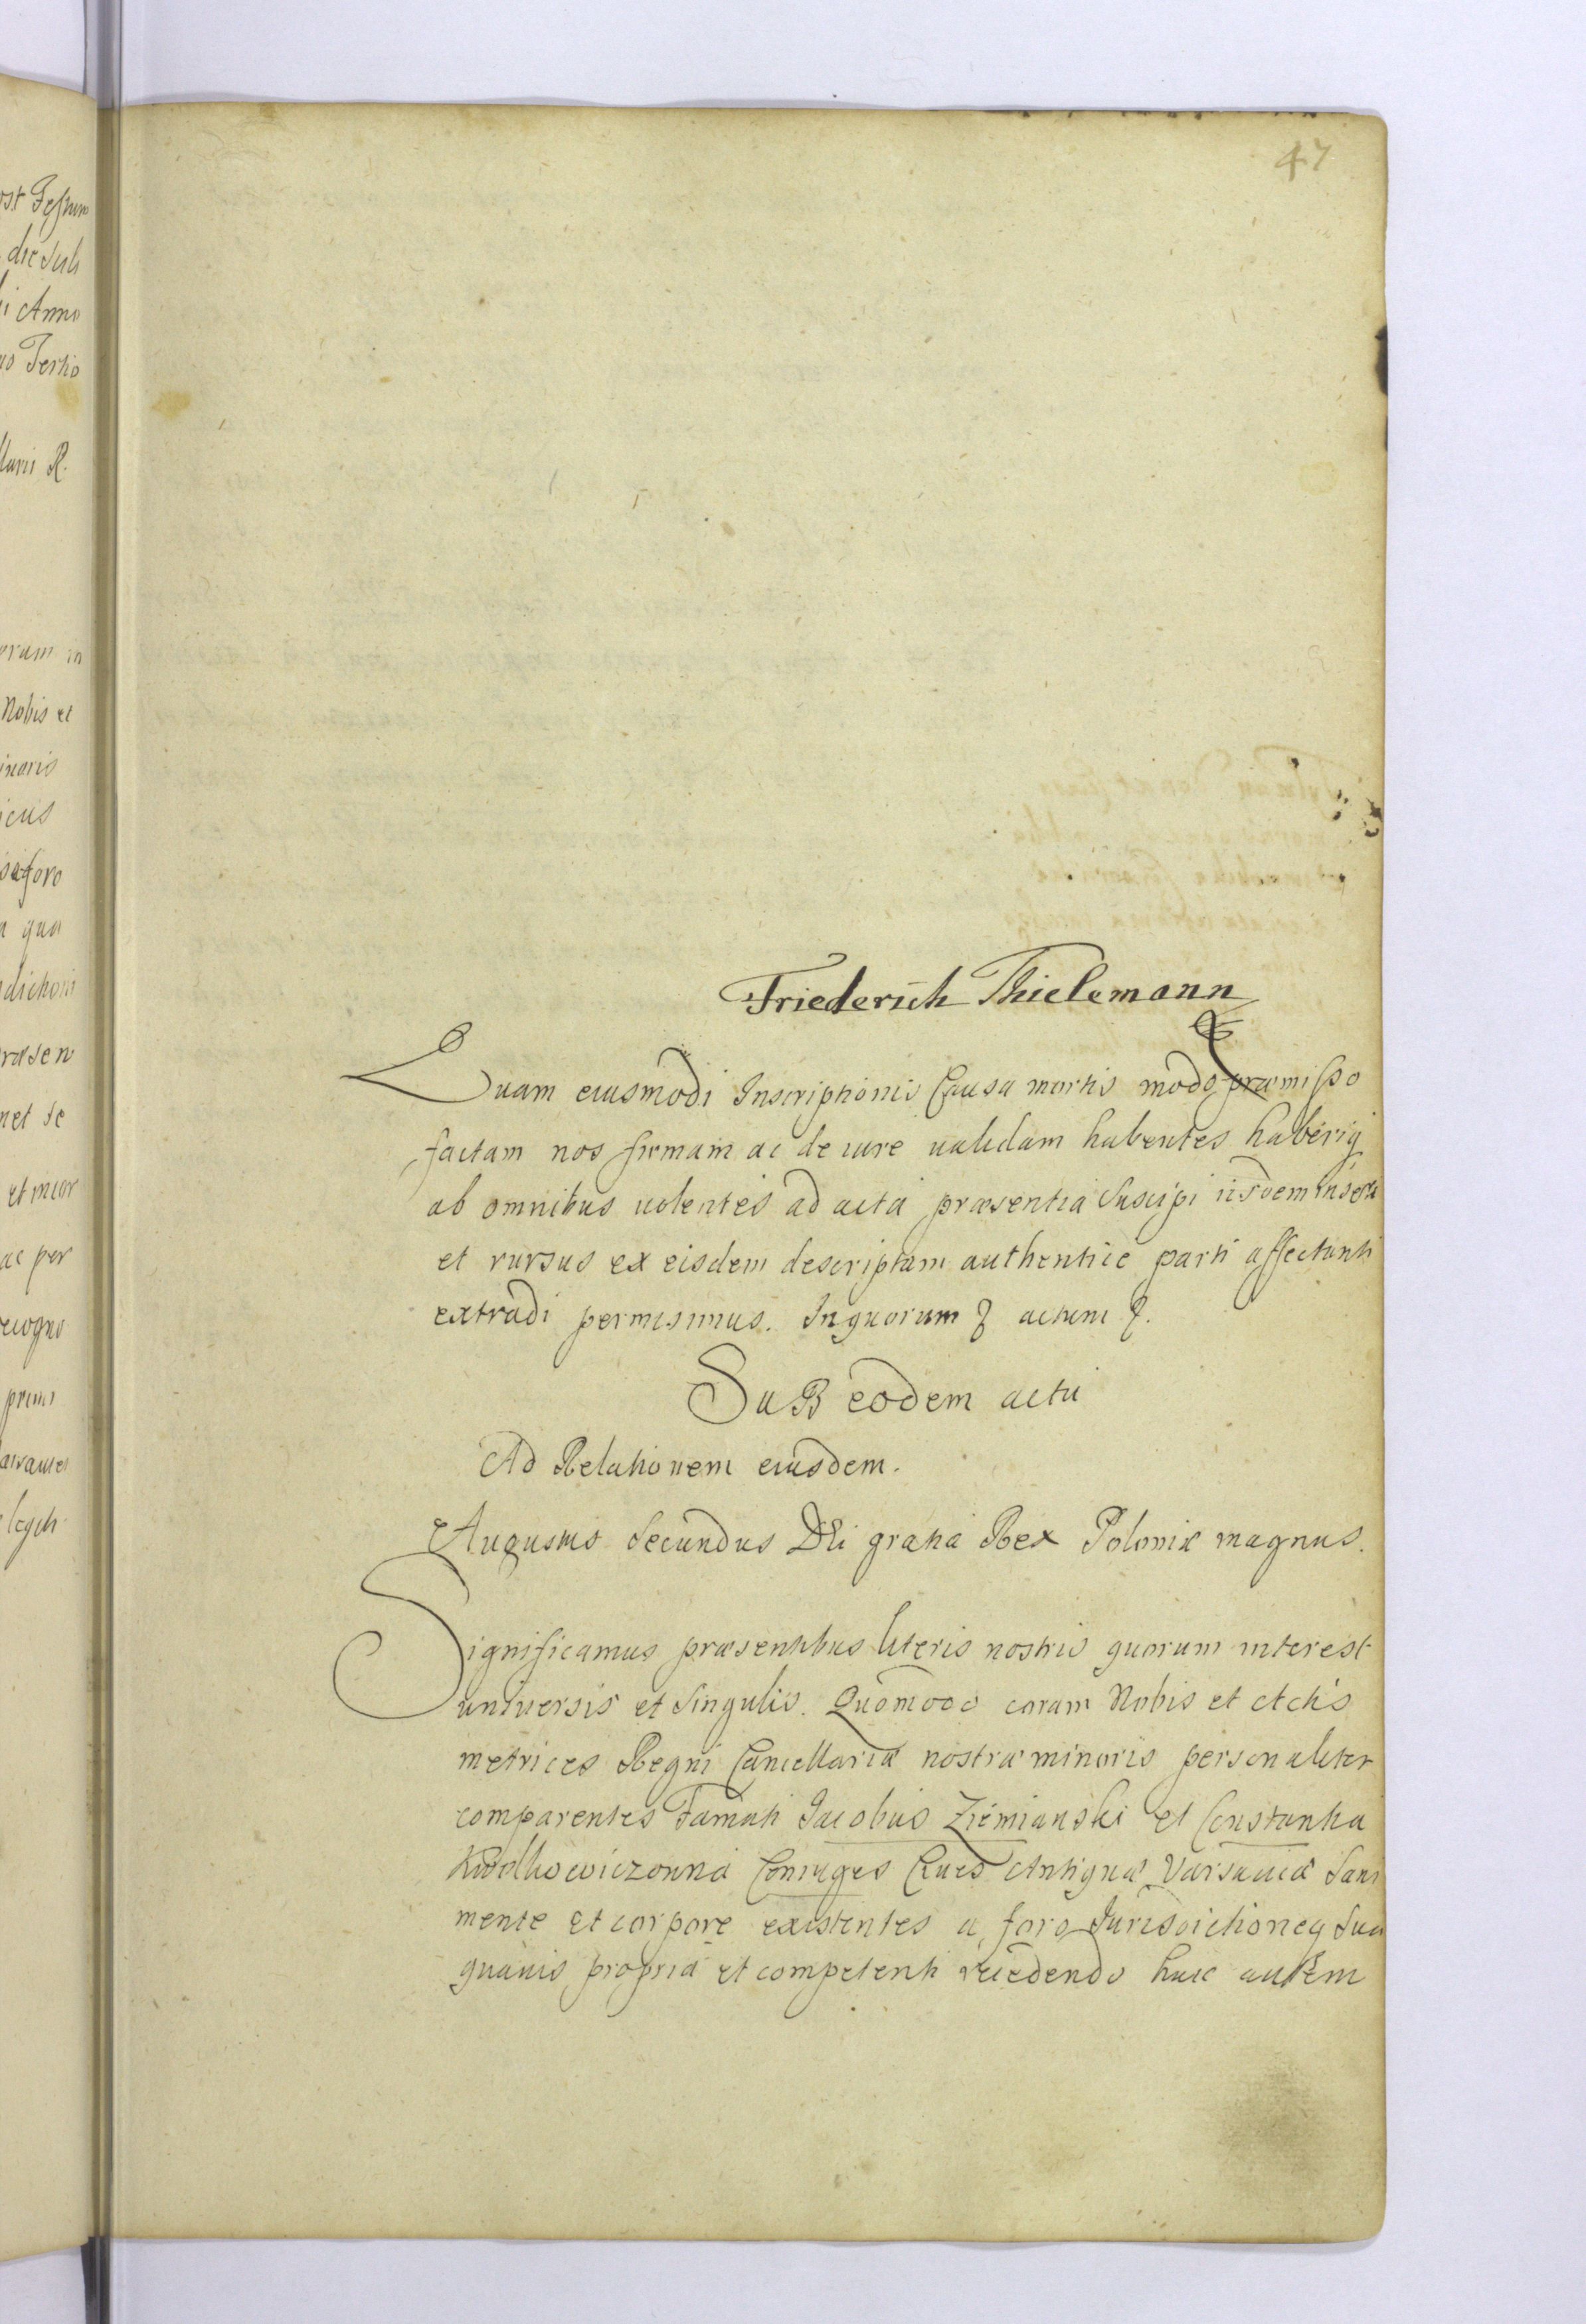 ost Festum
die Juli
i Anno
no Tertio
llarii R.
orum in
Nobis et
icus
foro
qua
præsen
met se
et mior
ac per
recogno
primi
47
Friederich Thielemann
Quam eiusmodi Inscriptionis Causa mortis modo præmisso
factam nos firmam ac de iure validam habentes haberiq
ab omnibus volentes ad acta præsentia suscipi iisdem inseri
et rursus ex eisdem descriptam authentice parti affectanti
extradi permisimus. In quorum & actum &.
Sub eodem actu
Ad Relationem eiusdem.
Augustus Secundus DEi gratia Rex Poloniæ magnus.
Significamus præsentibus literis nostris quorum interest
universis et singulis. Quomodo coram Nobis et Actis
metrices Regni Cancellariæ nostræ minoris personaliter
comparentes Famati Jacobus Ziemianski et Constantia
Coniuges Cives Antiquæ Varsaviæ sani
mente et corpore existentes a foro Jurisdictioneq sua
quavis propria et competenti recedendo huic autem